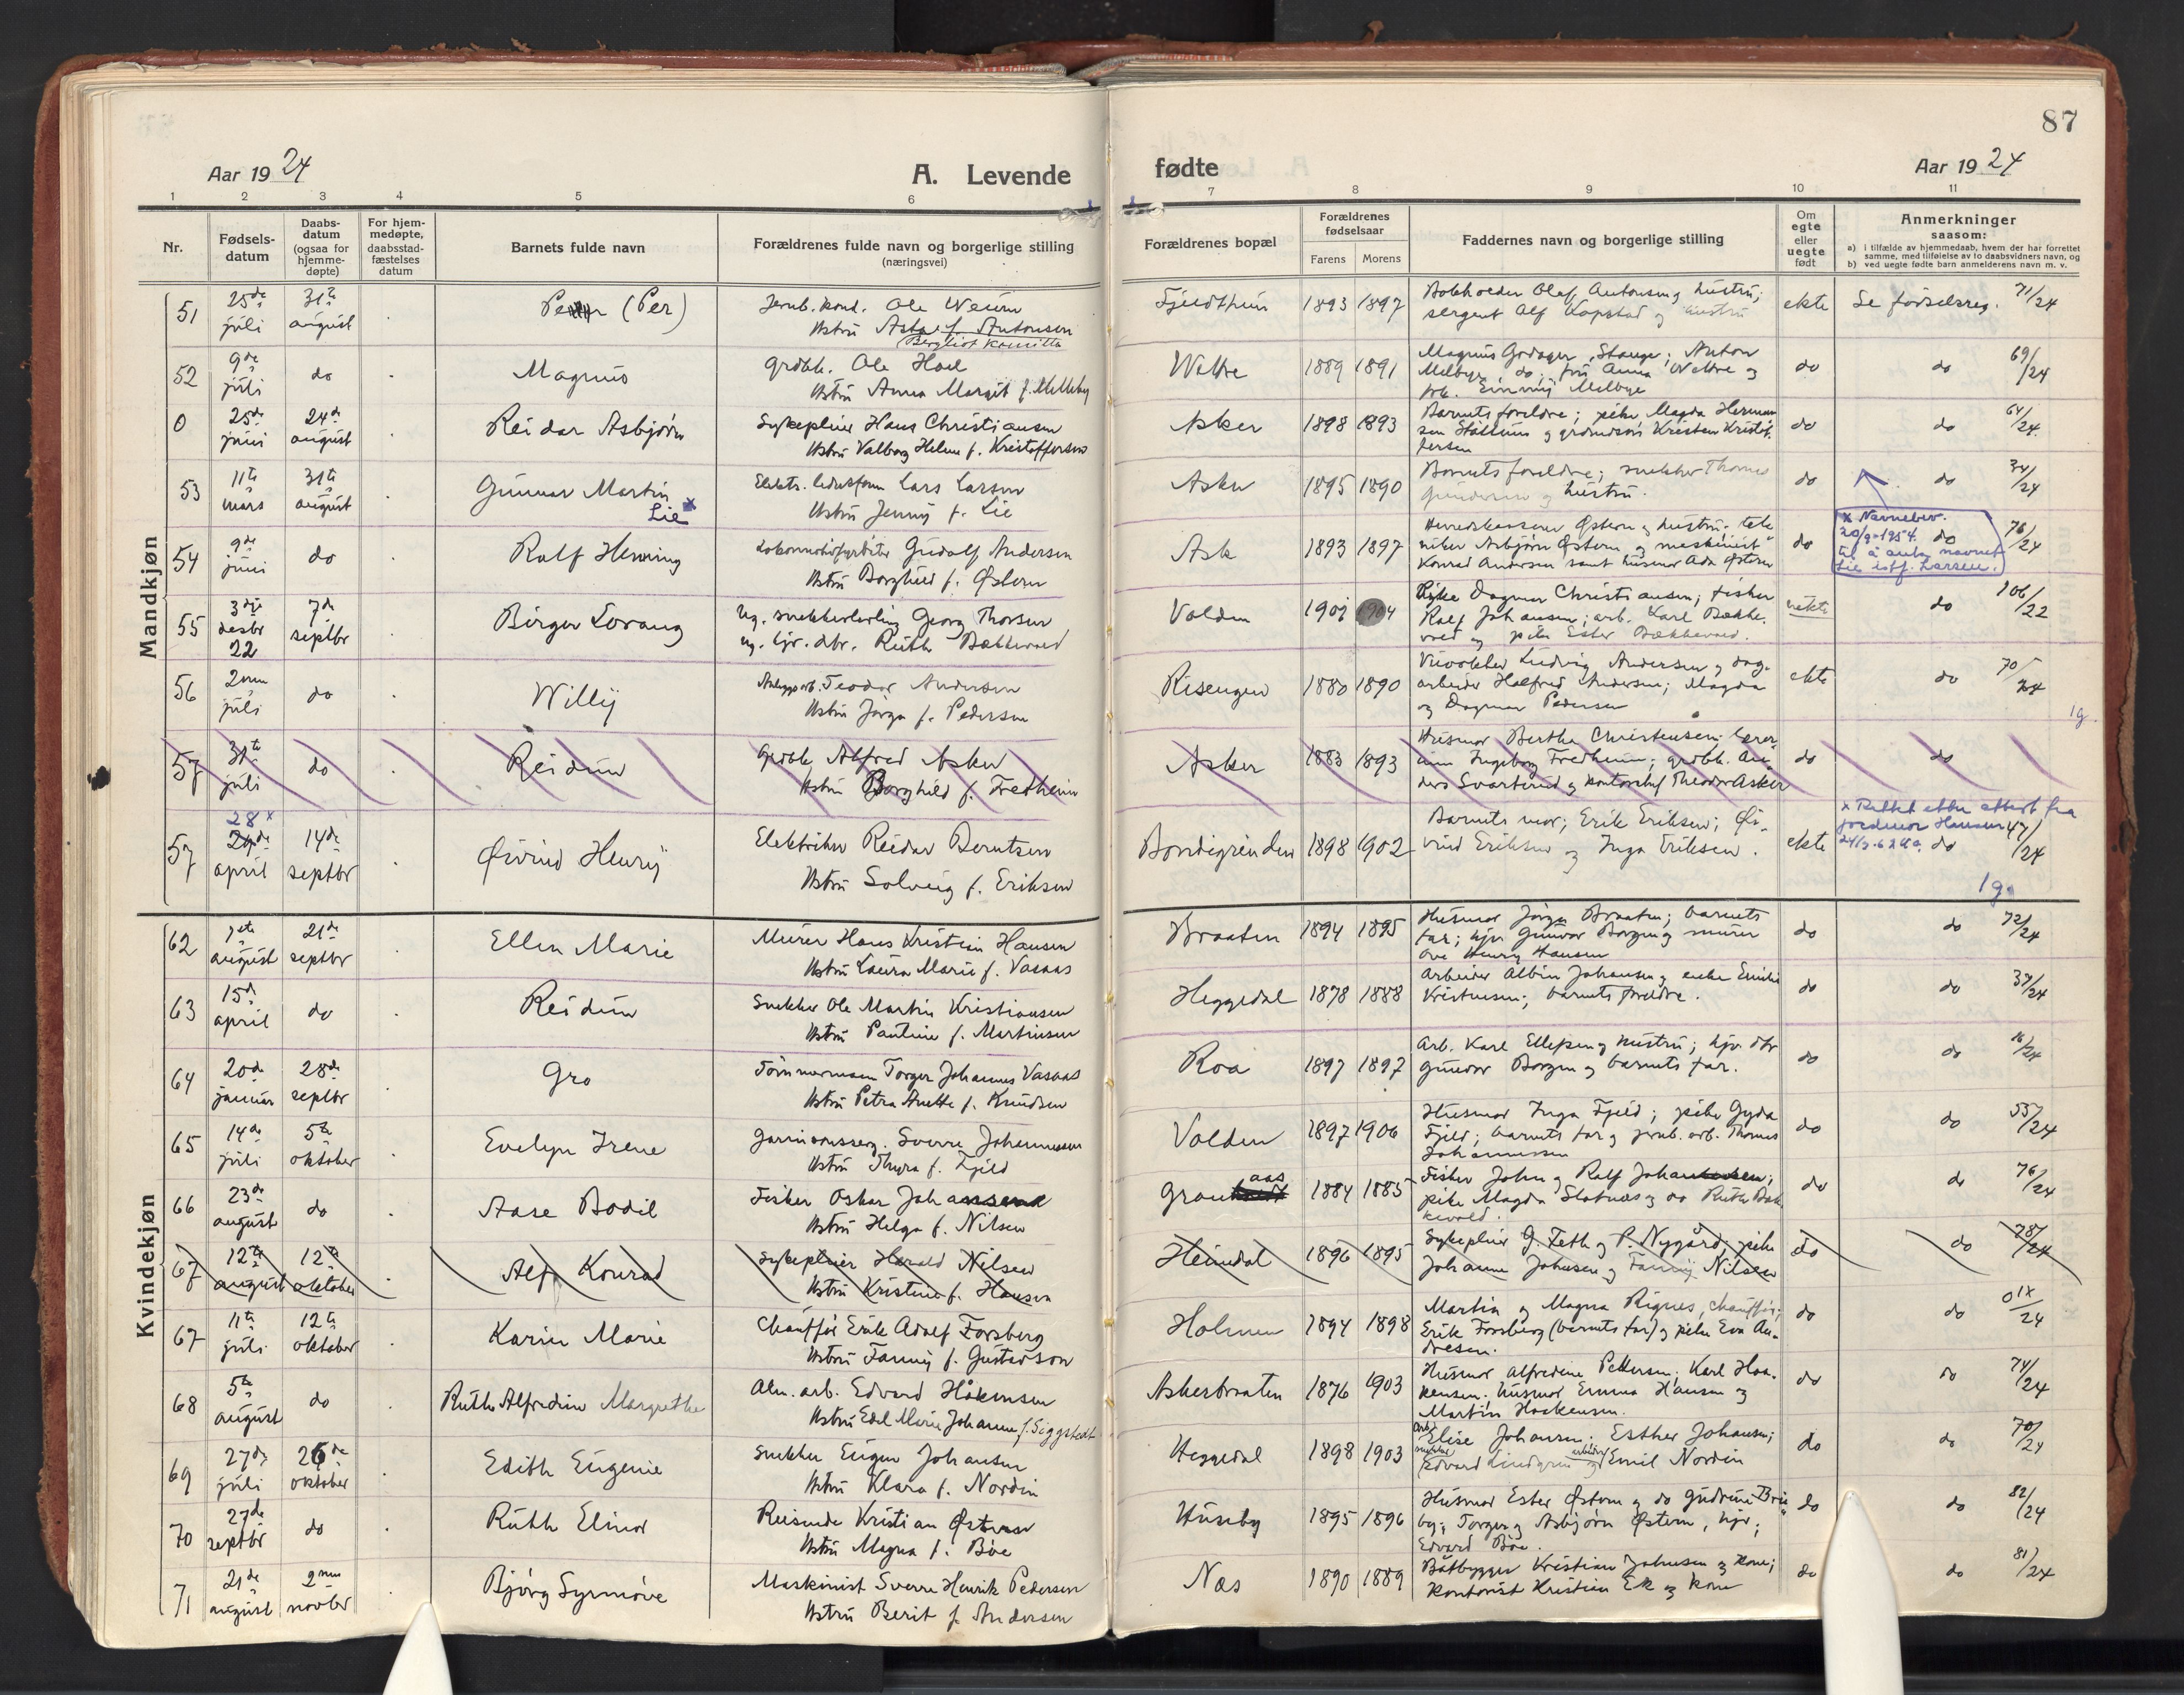 87
Aar 1924
A. Levende
fødte
Aar 1924
1 2 3 4 5 6 7 8 9 10 11
Nr.
Fødsels-
datum
Daabs-
datum
(ogsaa for
hjemme-
døpte)
For hjem-
medøpte,
daabsstad-
fæstelses
datum
Barnets fulde navn
Forældrenes fulde navn og borgerlige stilling
(næringsvei)
Forældrenes bopæl
Forældrenes
fødselsaar
Farens Morens
Faddernes navn og borgerlige stilling
Om
egte
eller
uegte
født
Anmerkninger
saasom:
a) i tilfælde av hjemmedaab, hvem der har forrettet
samme, med tilføielse av to daabsvidners navn, og
b) ved uegte fødte barn anmelderens navn m. v.
Mandkjøn
51
25de juli
31te august
(Per)
Ole
Hstru Asta f. Antonsen
1893 1897
ekte
Se fødselsreg. 71/24
52
9de juli
do
Magnus
Ole Hoel
Hstru Anna Margit f.
1889 1891
do
do 69/24
0
25de juni
24de august
Reidar Asbjørn
Sykepleier Hans Christiansen
Hstru Valborg Helene f. Kristoffersen
Asker
1898 1893
Barnets foreldre; pike Magda
do
do 64/24
53
11te mars
31te august
Gunnar Martin
Lie x
Lars Larsen
Hstru Jenny f. Lie
Asker
1895 1890
Barnets foreldre; snekker Thomas
hustru.
do
do 34/24
x Navnebev.
20/9-1954.
til å anta navnet
Lie istf. Larsen.
54
9de juni
do
Rolf Henning
Gudolf Andersen
Hstru Borghild f. Østern
Ask
1893 1897
Østern og hustru;
Asbjørn Østern og maskinist
Konrad Andersen samt husmor Ada Østern
do
do 76/24
55
3die desbr 22
7de septbr
Birger Lorang
Ug. snekkerlærling Georg Thorsen
Ug. hjv. dtr. Ruth Bækkevold
Volden
1901 1904
Pike Dagmar Christiansen; fisker
Ralf Johansen; arb. Karl Bække-
vold og pike Ester Bækkevold.
uekte
do 106/22
56
juli
do
Willy
Teodor Andersen
Hstru Jorga f. Pedersen
Risengen
1880 1890
Ludvig Andersen og dag-
arbeider Halfred Andersen; Magda
og Dagmar Pedersen
ekte
do 70/24
1g.
57
31te juli
do
Reidun
Grdbr. Alfred Asker
Hstru Borghild f. Fredheim
Asker
1883 1893
Husmor Bertha Christensen; lærer-
inne Ingeborg Fredheim; grdbr.
Svarterud og kontorchef Theodor Asker
do
do
57
28x
april
14de septbr
Øivind Henry
Elektriker Reidar Berntsen
Hstru Solveig f. Eriksen
Bondigrenden
1898 1902
Barnets mor; Erik Eriksen; Øi-
vind Eriksen og Inga Eriksen.
ekte
x Rettet etter attest fra
jordmor Hansen
do 47/24
1g.
Kvindekjøn
62
august
21de septbr
Ellen Marie
Murer Hans Kristian Hansen
Hstru Laura Marie f. Vasaas
Braaten
1894 1895
Husmor Jørga Braaten; barnets
far; hjv. Gunvor Borgen og murer
Ove Henry Hansen
do
do 72/24
63
15de april
do
Reidun
Snekker Ole Martin Kristiansen
Hstru Pauline f. Martinsen
Heggedal
1878 1888
Arbeider Albin Johansen og enke
Kristensen; barnets foreldre.
do
do 39/24
64
20de januar
28de septbr
Gro
Tømmermann Torger Johannes Vasaas
Hstru Petra Anette f. Knudsen
Roa
1897 1897
Arb. Karl Ellefsen og hustru; hjv. dtr
Gunvor Borgen og barnets far.
do
do 16/24
65
14de juli
5te oktober
Evelyn Irene
Sverre Johannessen
Hstru Thyra f. Fjeld
Volden
1897 1906
Husmor Inga Fjeld; pike Gyda
Fjeld; barnets far og jernb. arb. Thomas
Johannessen
do
do 55/24
66
23de august
do
Aase Bodil
Fisker Oskar Johanssen
Hstru Helga f. Nilsen
aas
1884 1885
Fisker John og Ralf Johansen;
pike Magda Slotnæs og do Ruth Bæk-
kevold.
do
do 76/24
67
12te august
12te oktober
Alf Konrad
Sykepleier Harald Nilsen
Hstru Kristine f. Hansen
Heimdal
1896 1895
Sykepleier G. Feth og P. Nygård; pike
Johanne Johnsen og Fanny Nilsen
do
do 78/24
67
11te juli
12te oktober
Karin Marie
Chauffør Erik Adolf Forsberg
Hstru Fanny f. Gustavson
Holmen
1894 1898
Martin og Magna Rignes, chauffør;
Erik Forsberg (barnets far) og pike Eva An-
dresen.
do
do
68
5te august
do
Ruth Alfredine Margrethe
Alm. arb. Edvard Håkensen
Hstru Edel Marie Johanne f. Siggstedt
Askerbraaten
1876 1903
Husmor Alfredine Pettersen; Karl Haa-
kensen; husmor Emma Hansen og
Martin Haakensen.
do
do 74/24
69
27de juli
26de oktober
Edith Eugenie
Snekker Eugen Johansen
Hstru Klara f. Nordin
Heggedal
1898 1903
Elise Johansen; Esther Johansen;
Edvard Lindgren og Emil Nordin
do
do 70/24
70
27de septbr
do
Ruth Elinor
Reisende Kristian Østern
Hstru Magna f. Bøe
Huseby
1895 1896
Husmor Ester Østern og do Gudrun
Torger og Asbjørn Østern, hjv;
Edvard Bøe.
do
do 82/24
71
21de august
novbr
Bjørg Synnøve
Maskinist Sverre Henrik Pedersen
Hstru Berit f. Andersen
Næs
1890 1889
Båtbygger Kristian Johnsen og kone;
Kontorist Kristian Ek og kone
do
do 81/24